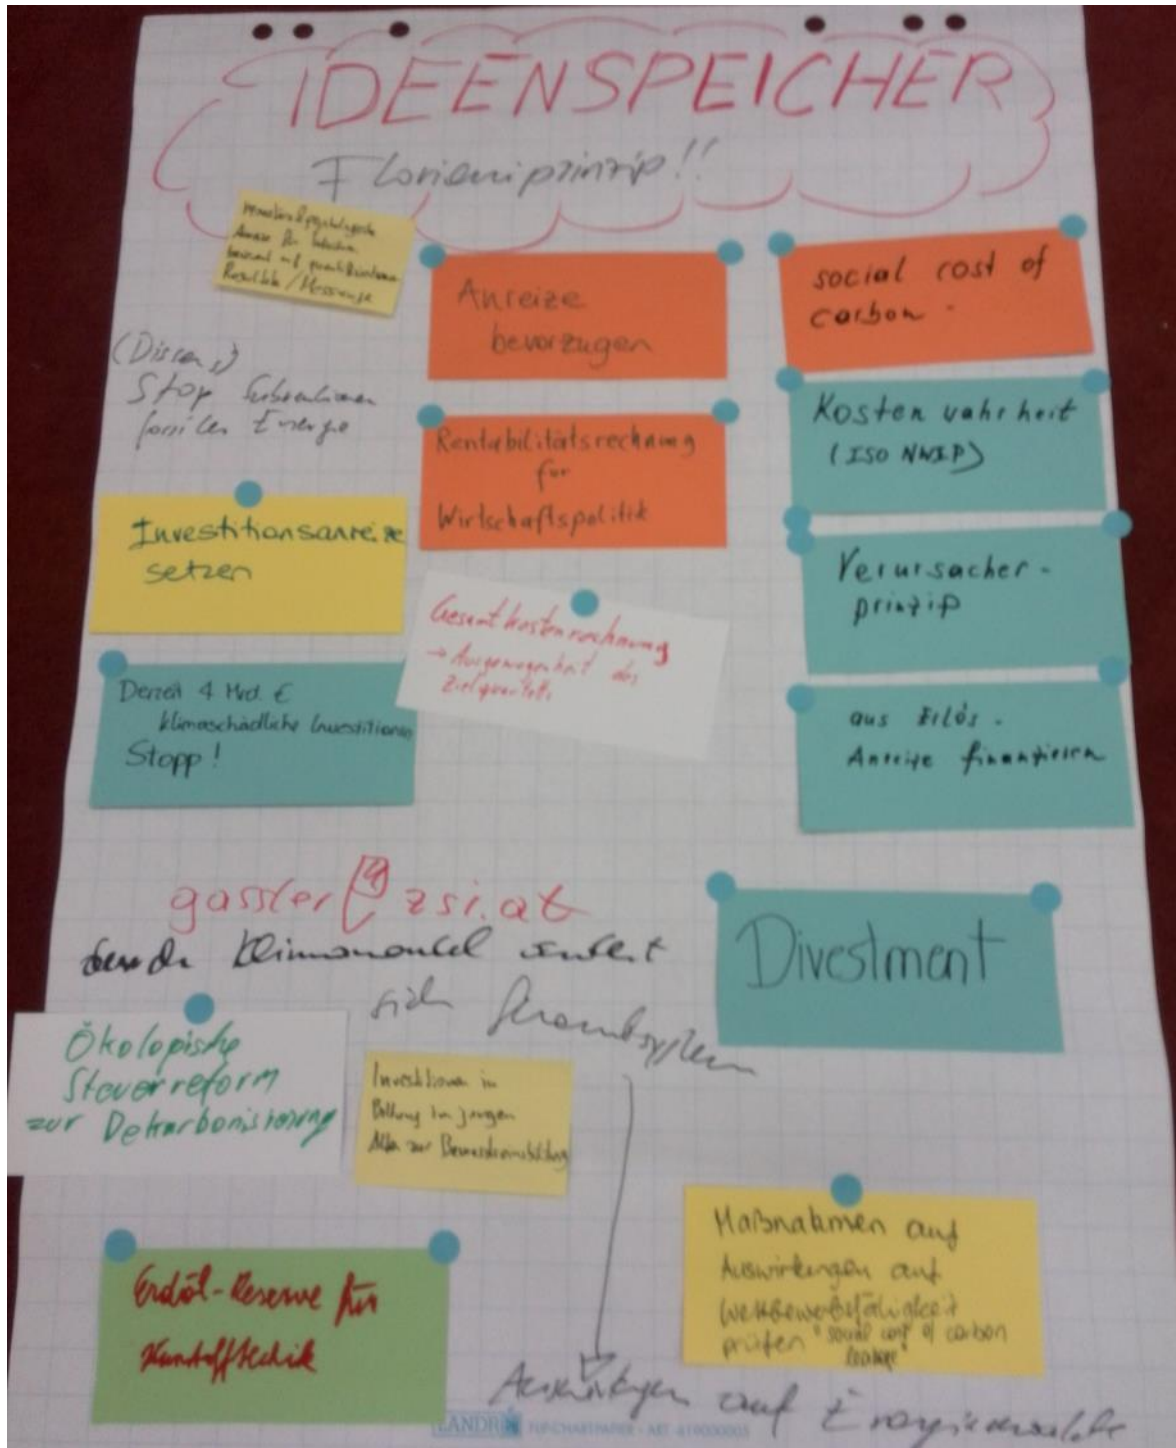 IDEENSPEICHER
Florianiprinzip!!
Resultate / Messunge
Anreize
bevorzugen
social cost of
carbon -
(Dissens)
Stop Subventionen
fossiler Energie
Rentabilitätsrechnung
für
Wirtschaftspolitik
Kostenwahrheit
(ISO NWIP)
Investitionsanreize
setzen
Verursacher-
prinzip
Gesamtkostenrechnung
→ Ausgewogenheit des
Zielquartetts
Derzeit 4 Mrd. €
klimaschädliche Investitionen
Stopp!
aus Erlös -
Anreize finanzieren
gassler@zsi.at
Klimawandel ändert
sich Gesamtsystem
Divestment
Ökologische
Steuerreform
zur Dekarbonisierung
Investitionen in
Bildung in jungen
zur Bewusstseinsbildung
Erdöl-Reserve für
Kunstofftechik
Maßnahmen auf
Auswirkungen auf
Wettbewerbsfähigkeit
prüfen "social cost of carbon
leakage"
Auswirkungen auf
LANDRÉ FLIPCHARTPAPIER